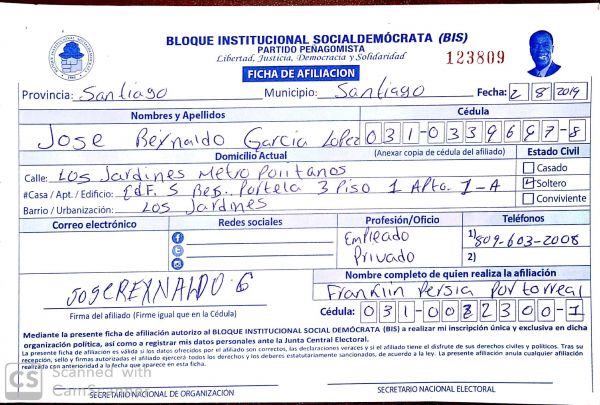 BLOQUE INSTITUCIONAL SOCIALDEMÓCRATA (BIS)
PARTIDO PEÑAGOMISTA
Libertad, Justicia, Democracia y Solidaridad
123809
FICHA DE AFILIACION
Provincia: Santiago Municipio: Santiago Fecha: 2/8/2019
Nombres y Apellidos Cédula
Jose Reynaldo Garcia Lopez 031-0339667-8
Domicilio Actual (Anexar copia de cédula del afiliado) Estado Civil
Calle: Los Jardines Metropolitanos Casado
#Casa / Apt. / Edificio: Edf. S Portela 3 Piso 1 Apto. 1-A Soltero
Barrio / Urbanización: Los Jardines Conviviente
Correo electrónico Redes sociales Profesión/Oficio Teléfonos
Empleado 1) 809-603-2008
Privado 2)
JOSE REYNALDO G Nombre completo de quien realiza la afiliación
Franklin Persia Portorreal
Firma del afiliado (Firme igual que en la Cédula) Cédula: 031-0082300-1
Mediante la presente ficha de afiliación autorizo al BLOQUE INSTITUCIONAL SOCIAL DEMÓCRATA (BIS) a realizar mi inscripción única y exclusiva en dicha
organización política, así como a registrar mis datos personales ante la Junta Central Electoral.
La presente ficha de afiliación es válida si los datos ofrecidos por el afiliado son correctos, las declaraciones veraces y si el afiliado tiene el disfrute de sus derechos civiles y políticos. Tras su
recepción, selló y firmas autorizadas el afiliado ejercerá todos los derechos y los deberes estatutariamente sancionados, de acuerdo a la ley. La presente afiliación anula cualquier afiliación
realizada con anterioridad a la fecha que aparece en esta ficha.
CS Scanned with
CamScanner
SECRETARIO NACIONAL DE ORGANIZACIÓN SECRETARIO NACIONAL ELECTORAL